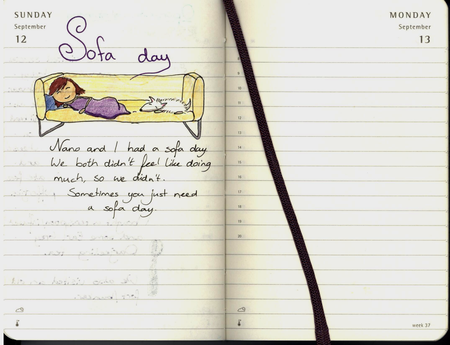 SUNDAY
September
12
Sofa day
Nano and I had a sofa day.
We both didn't feel like doing
much, so we didn't.
Sometimes you just need
a sofa day.
MONDAY
September
13
week 37